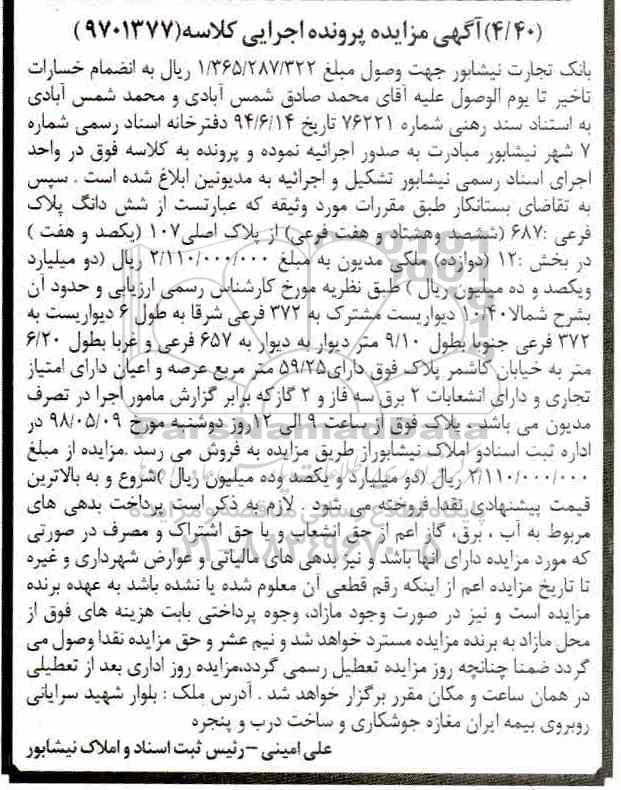 (۴/۴۰)آگهی مزایده پرونده اجرایی کلاسه(۹۷۰۱۳۷۷)
بانک تجارت نیشابور جهت وصول مبلغ ۱/۳۶۵/۲۸۷/۳۲۲ ریال به انضمام خسارات
تاخیر تا یوم الوصول علیه آقای محمد صادق شمس آبادی و محمد شمس آبادی
به استناد سند رهنی شماره ۷۶۲۲۱ تاریخ ۹۴/۶/۱۴ دفترخانه اسناد رسمی شماره
۷ شهر نیشابور مبادرت به صدور اجرائیه نموده و پرونده به کلاسه فوق در واحد
اجرای اسناد رسمی نیشابور تشکیل و اجرائیه به مدیونین ابلاغ شده است . سپس
به تقاضای بستانکار طبق مقررات مورد وثیقه که عبارتست از شش دانگ پلاک
فرعی :۶۸۷ (ششصد وهشتاد و هفت فرعی) از پلاک اصلی۱۰۷ (یکصد و هفت )
در بخش :۱۲ (دوازده) ملکی مدیون به مبلغ ۲/۱۱۰/۰۰۰/۰۰۰ ریال (دو میلیارد
ویکصد و ده میلیون ریال ) طبق نظریه مورخ کارشناس رسمی ارزیابی و حدود آن
بشرح شمالا۱۰/۴۰ دیواریست مشترک به ۳۷۲ فرعی شرقا به طول ۶ دیواریست به
۳۷۲ فرعی جنوبا بطول ۹/۱۰ متر دیوار به دیوار به ۶۵۷ فرعی و غربا بطول ۶/۲۰
متر به خیابان کاشمر پلاک فوق دارای۵۹/۲۵ متر مربع عرصه و اعیان دارای امتیاز
تجاری و دارای انشعابات ۲ برق سه فاز و ۲ گازکه برابر گزارش مامور اجرا در تصرف
مدیون می باشد . پلاک فوق از ساعت ۹ الی ۱۲روز دوشنبه مورخ ۹۸/۰۵/۰۹ در
اداره ثبت اسنادو املاک نیشابوراز طریق مزایده به فروش می رسد .مزایده از مبلغ
۲/۱۱۰/۰۰۰/۰۰۰ ریال (دو میلیارد و یکصد وده میلیون ریال )شروع و به بالاترین
قیمت پیشنهادی نقدا فروخته می شود . لازم به ذکر است پرداخت بدهی های
مربوط به آب ، برق، گاز اعم از حق انشعاب و یا حق اشتراک و مصرف در صورتی
که مورد مزایده دارای آنها باشد و نیز بدهی های مالیاتی و عوارض شهرداری و غیره
تا تاریخ مزایده اعم از اینکه رقم قطعی آن معلوم شده یا نشده باشد به عهده برنده
مزایده است و نیز در صورت وجود مازاد، وجوه پرداختی بابت هزینه های فوق از
محل مازاد به برنده مزایده مسترد خواهد شد و نیم عشر و حق مزایده نقدا وصول می
گردد ضمنا چنانچه روز مزایده تعطیل رسمی گردد،مزایده روز اداری بعد از تعطیلی
در همان ساعت و مکان مقرر برگزار خواهد شد . آدرس ملک : بلوار شهید سرایانی
روبروی بیمه ایران مغازه جوشکاری و ساخت درب و پنجره
علی امینی – رئیس ثبت اسناد و املاک نیشابور
ParsNamadData
۰۲۱-۸۸۳۴۹۶۷۰-۵